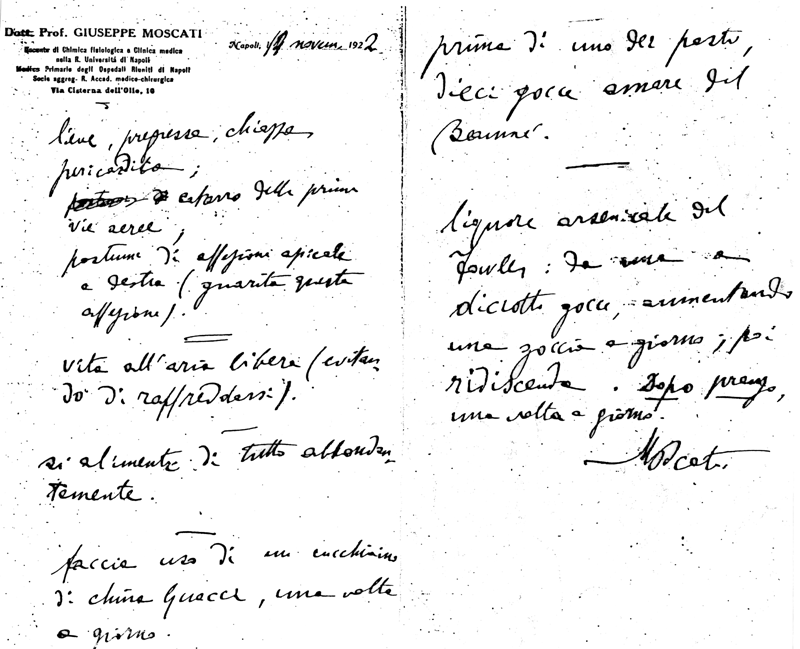 Dott. Prof. GIUSEPPE MOSCATI
Docente di Chimica fisiologica e Clinica medica
nella R. Università di Napoli
Medico Primario degli Ospedali Riuniti di Napoli
Socio aggreg. R. Accad. medico-chirurgica
Via Cisterna dell'Olio, 10
Napoli, novem. 1922
lieve, pregressa,
pericardite ;
catarro delle prime
vie aeree ;
postumi di affezioni apicale
a destra (guarita questa
affezione).
vita all'aria libera (evitan-
do di raffreddarsi).
si alimenti di tutto abbondan-
temente.
faccia uso di un cucchiaino
di china Guacci, una volta
a giorno.
prima di uno dei pasti,
dieci gocce amare del
Baumé.
liquore arsenicale del
Fowler : da una a
diciotto gocce, aumentando
una goccia a giorno ; poi
ridiscenda. Dopo pranzo,
una volta a giorno.
Moscati